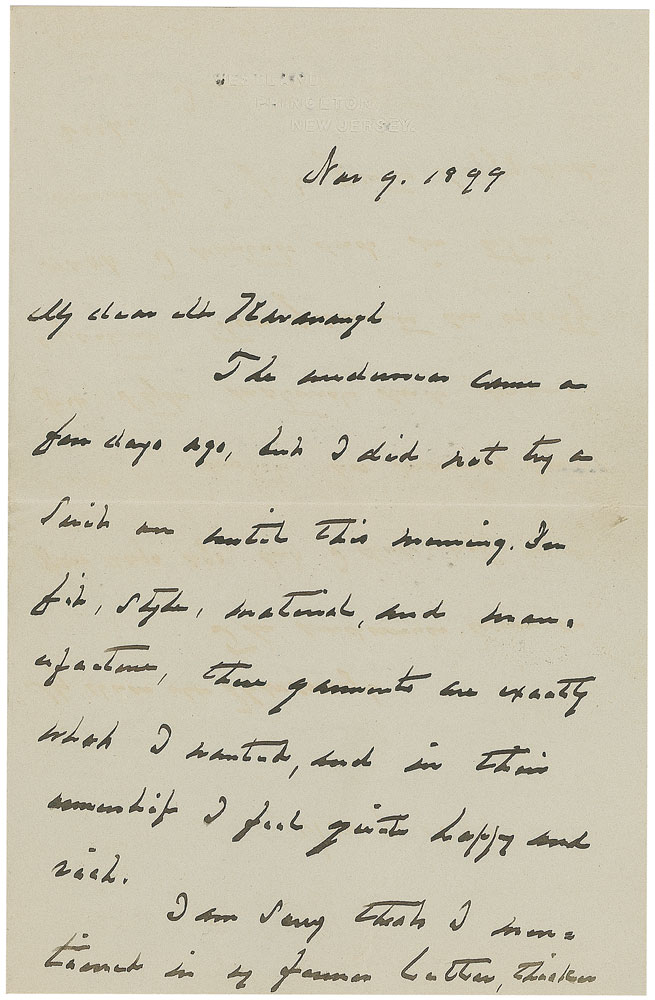 WESTLAND
PRINCETON
NEW JERSEY.
Nov 9. 1899
My dear Mr Kavanaugh
The underwear came a
few days ago, but I did not try a
Suit on until this morning. In
fit, style, material, and man-
ufacture, these garments are exactly
what I wanted, and in their
ownership I feel quite happy and
rich.
I am Sorry that I men=
tioned in my former letter,